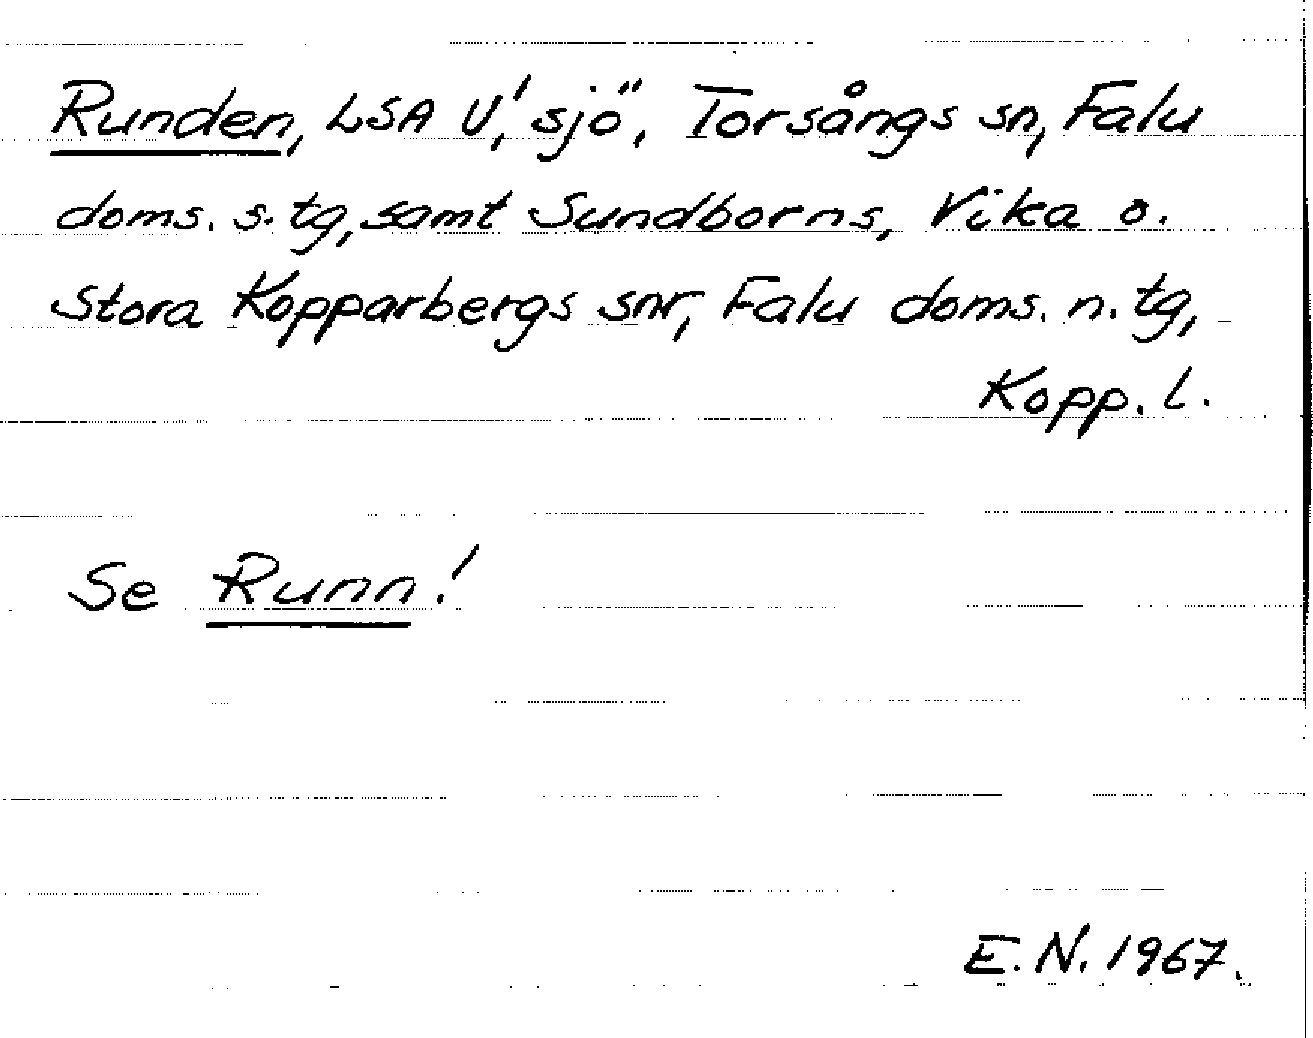 Runden, LSA U', sjö", Torsångs sn, Falu
doms. s. tg, samt Sundborns, Vika o.
Stora Kopparbergs snr, Falu doms. n. tg,
Kopp. l.
Se Runn!
E. N. 1967.